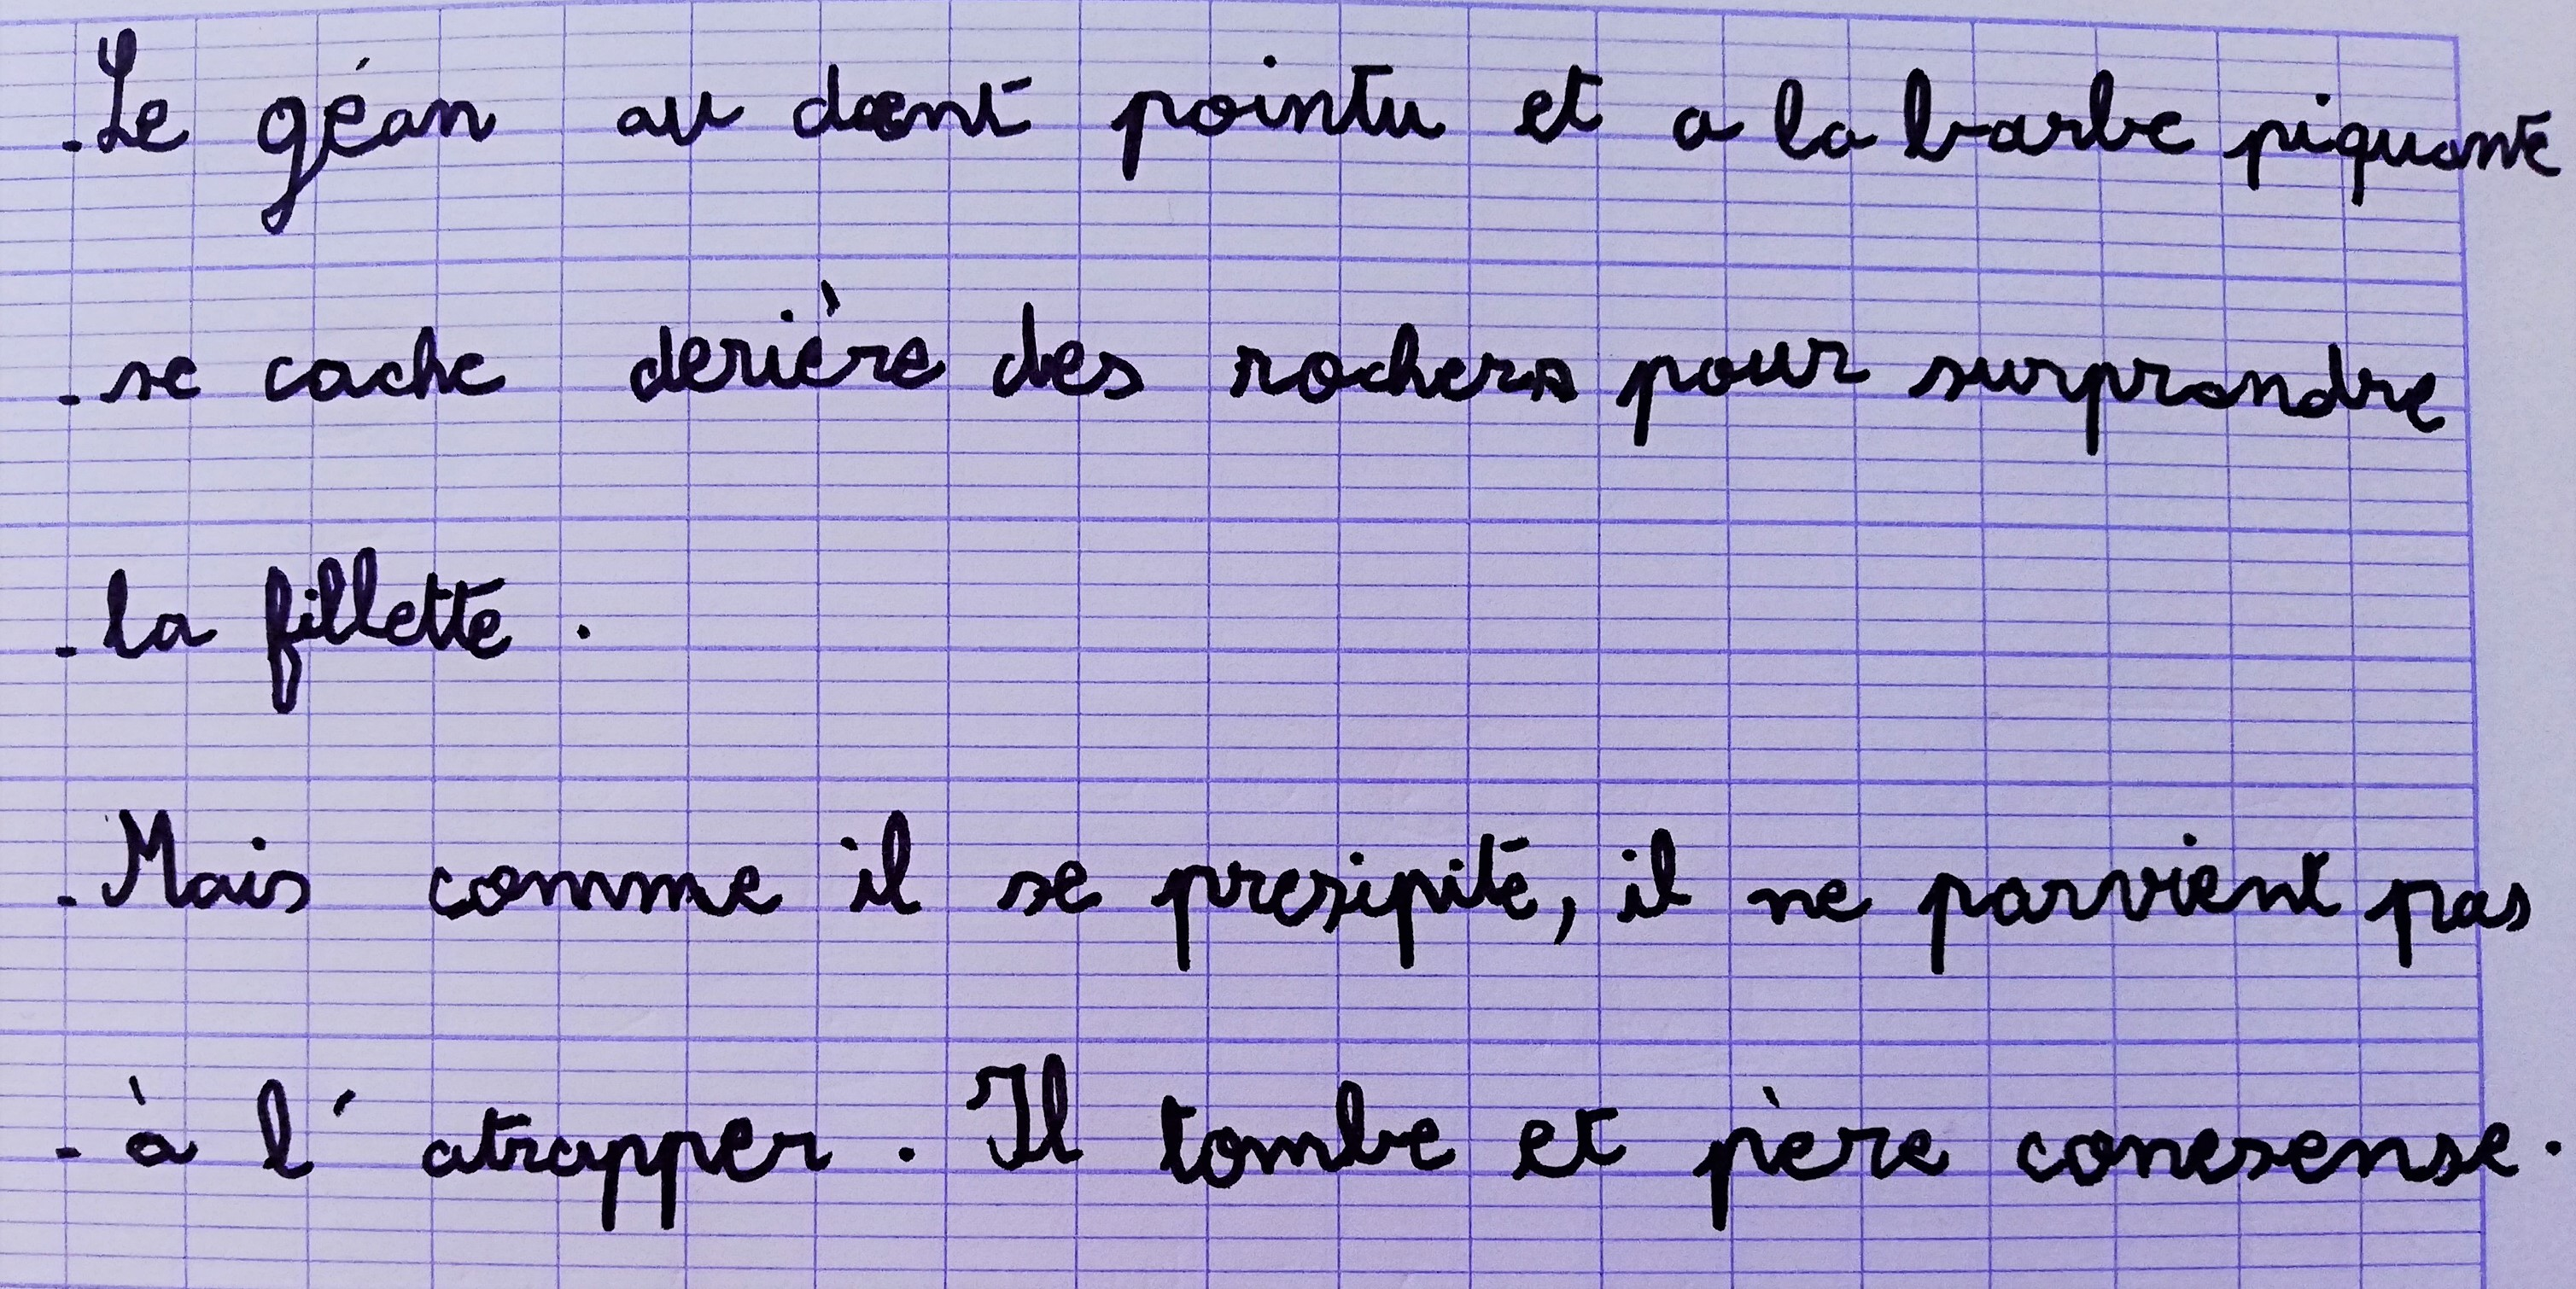 Le géan au daent pointu et a la barbe piquante
se cache derière des rochers pour surprandre
la fillette .
Mais comme il se presipité, il ne parvient pas
à l'atrapper. Il tombe et père conesense.